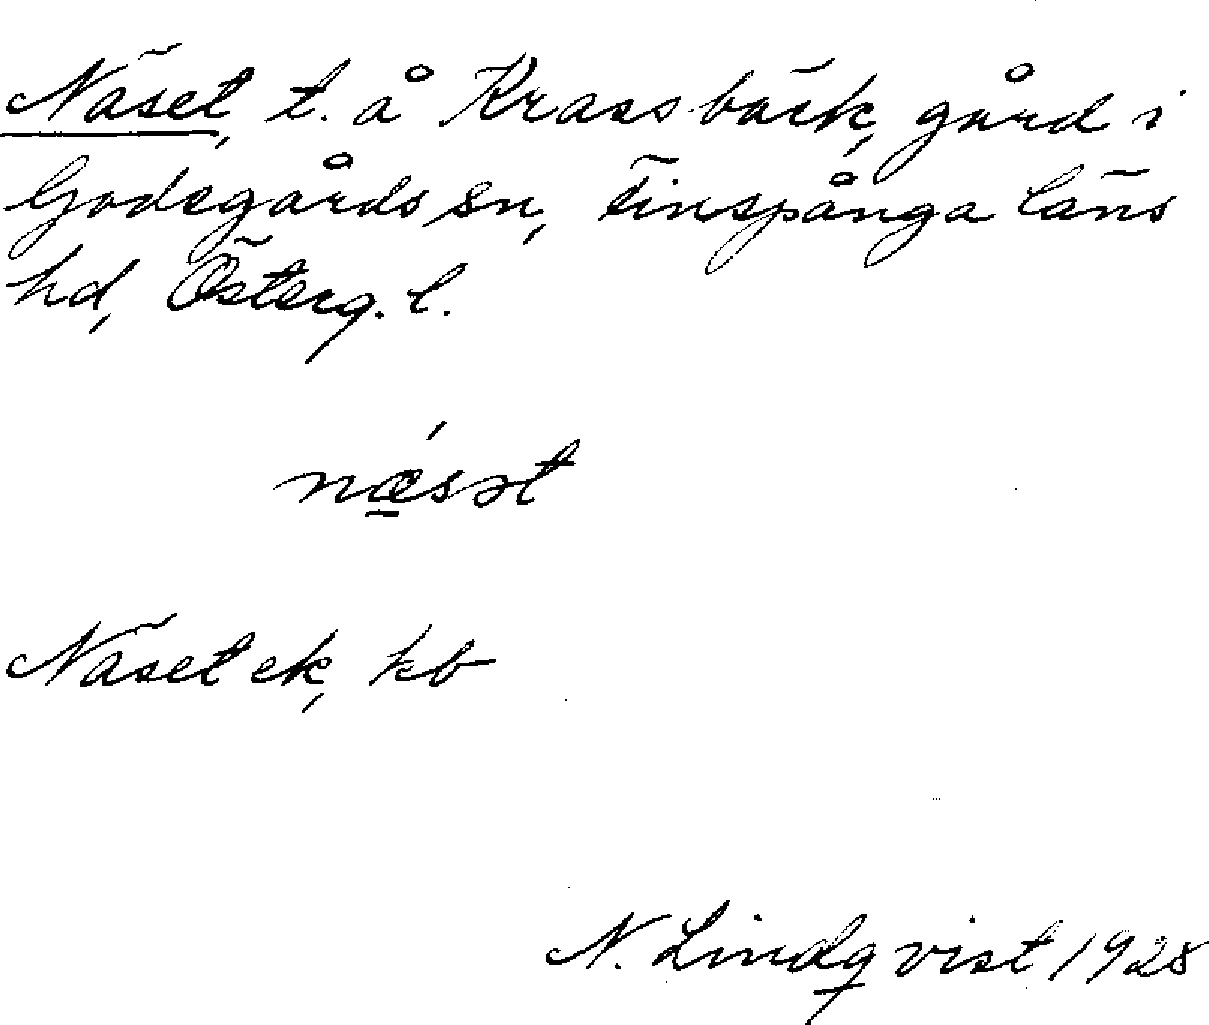 Näset, t. å Krassbäck, gård i
Godegårds sn, Finspånga läns
hd, Österg. l.
nǽ̱sət
Näset ek, kb
N. Lindqvist 1928